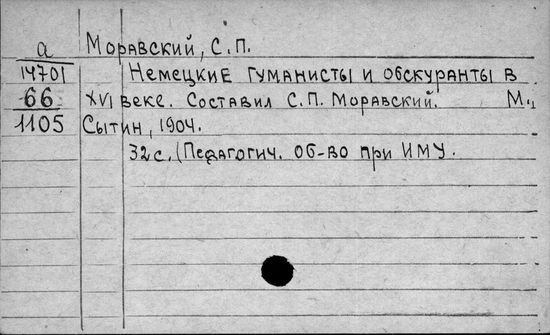 а Моравский, С.П.
14701 Немецкие гуманисты и обскуранты в
66 XVI веке. Составил С.П. Моравский. М.,
1105 Сытин, 1904.
32с. (Педагогич. об-во при ИМУ.